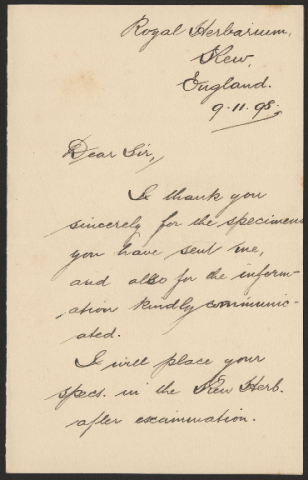 Royal Herbarium,
Kew,
England.
9.11.98.
Dear Sir,
I thank you
sincerely for the specimens
you have sent me,
and also for the inform-
ation kindly communic-
ated.
I will place your
specs. in the Kew Herb.
after examination.